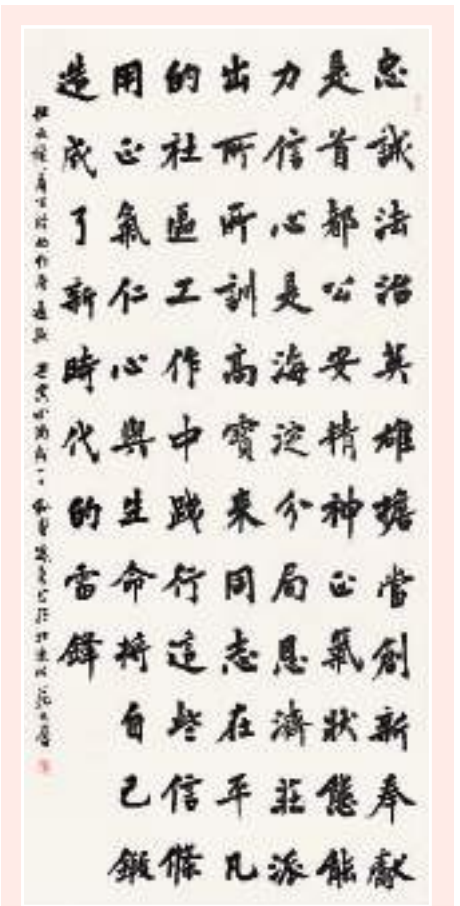 忠誠法治英雄擔當創新奉獻
是首都公安精神正氣狀態能
力信心是海淀分局恩濟莊派
出所所訓高寶來同志在平凡
的社區工作中践行這些信條
用正氣仁心與生命將自己鍛
造成了新時代的雷鋒